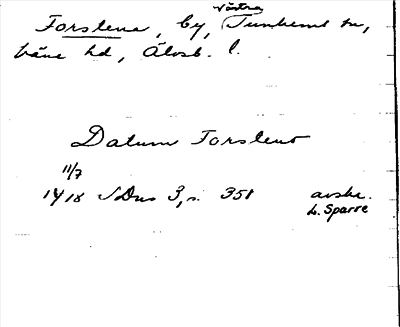 Västra
Forslene, by, Tunhems sn,
Väne hd, Älvsb. l.
Datum Forsleno
11/7
1418 SDns 3, s. 351 avskr.
L. Sparre